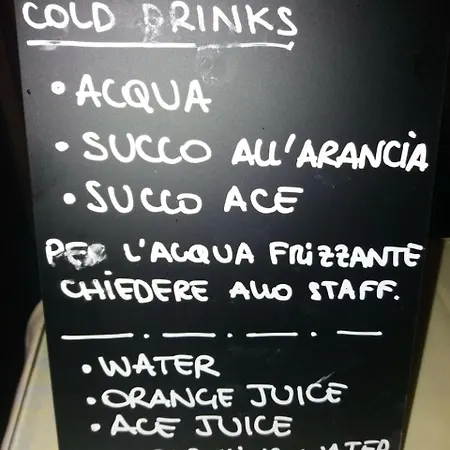 COLD DRINKS
• ACQUA
• SUCCO ALL'ARANCIA
• SUCCO ACE
PER L'ACQUA FRIZZANTE
CHIEDERE ALLO STAFF.
• WATER
• ORANGE JUICE
• ACE JUICE
WATER